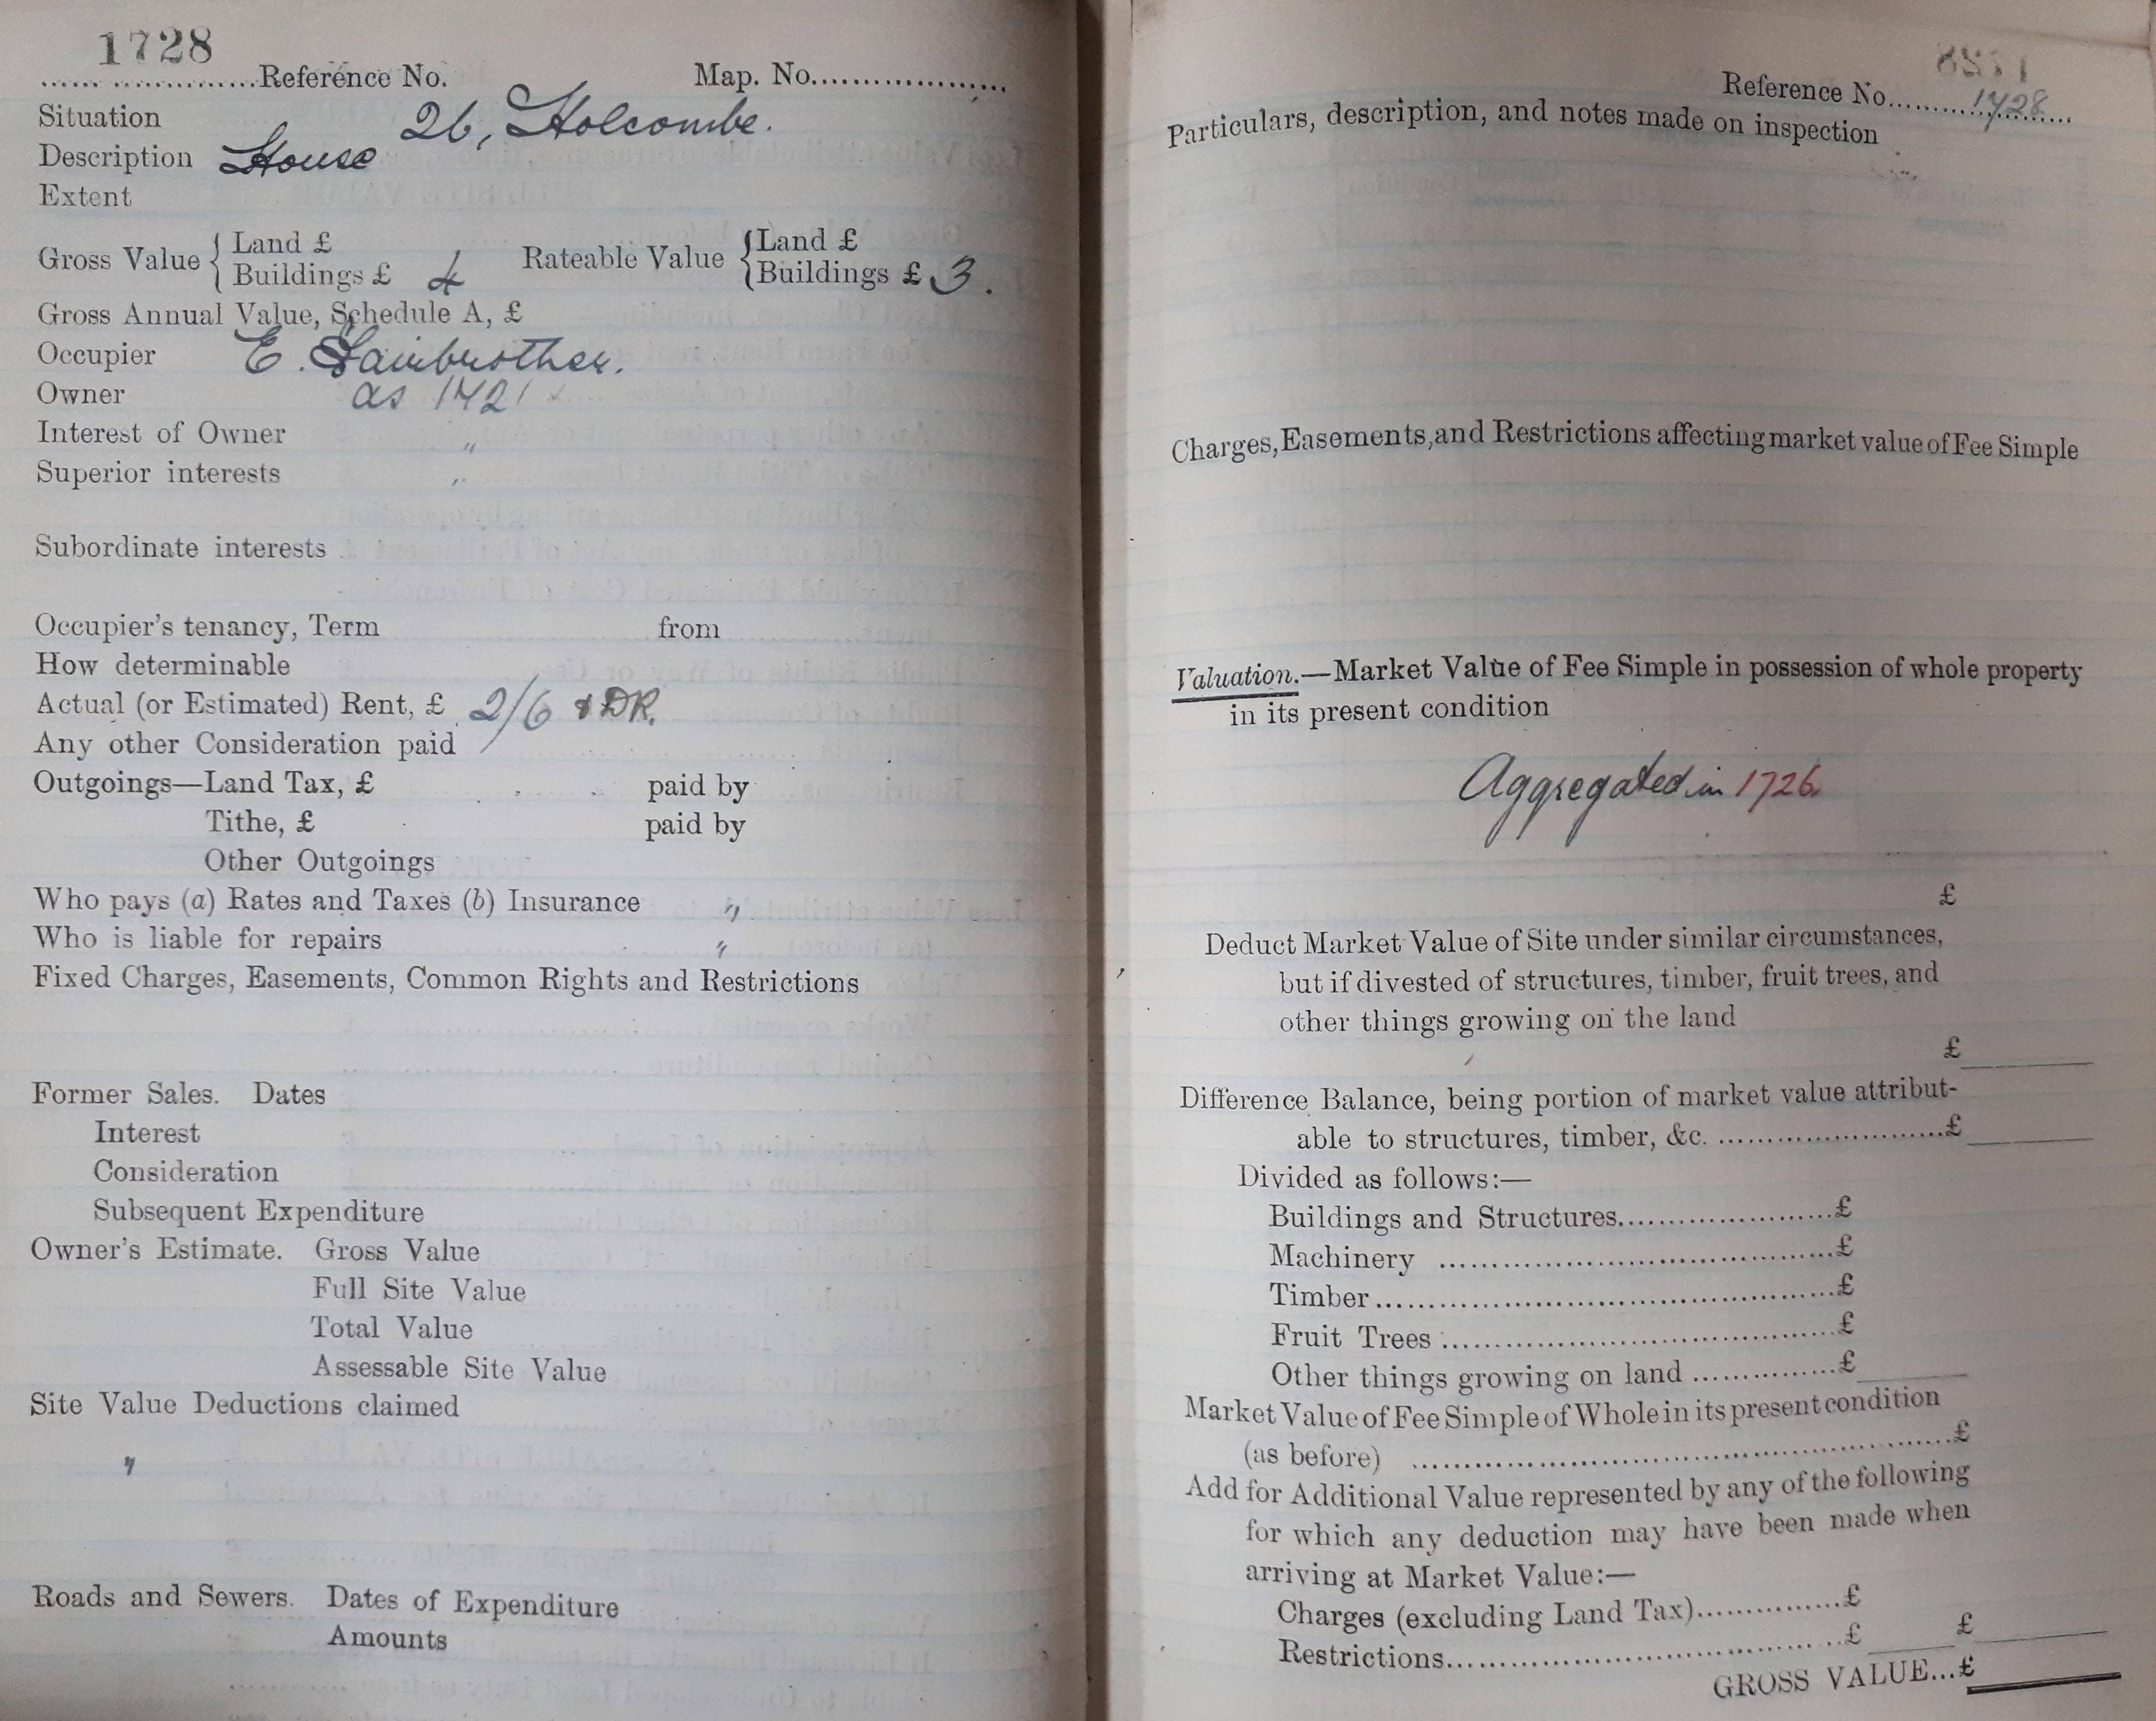 1728
Reference No. Map. No.
Situation 26, Holcombe.
Description House
Extent
Gross Value { Land £
Buildings £ 4
Rateable Value { Land £
Buildings £ 3.
Gross Annual Value, Schedule A, £
Occupier E. Fairbrother.
Owner as 1421
Interest of Owner "
Superior interests "
Subordinate interests
Occupier's tenancy, Term from
How determinable
Actual (or Estimated) Rent, £ 2/6 & DR.
Any other Consideration paid
Outgoings—Land Tax, £ paid by
Tithe, £ paid by
Other Outgoings
Who pays (a) Rates and Taxes (b) Insurance "
Who is liable for repairs "
Fixed Charges, Easements, Common Rights and Restrictions
Former Sales. Dates
Interest
Consideration
Subsequent Expenditure
Owner's Estimate. Gross Value
Full Site Value
Total Value
Assessable Site Value
Site Value Deductions claimed
"
Roads and Sewers. Dates of Expenditure
Amounts
Reference No. 1728
Particulars, description, and notes made on inspection
Charges, Easements, and Restrictions affecting market value of Fee Simple
Valuation.—Market Value of Fee Simple in possession of whole property
in its present condition
Aggregated in 1726.
£
Deduct Market Value of Site under similar circumstances,
but if divested of structures, timber, fruit trees, and
other things growing on the land
£
Difference Balance, being portion of market value attribut-
able to structures, timber, &c. £
Divided as follows:—
Buildings and Structures £
Machinery £
Timber £
Fruit Trees £
Other things growing on land £
Market Value of Fee Simple of Whole in its present condition
(as before) £
Add for Additional Value represented by any of the following
for which any deduction may have been made when
arriving at Market Value:—
Charges (excluding Land Tax) £
Restrictions £ £
GROSS VALUE...£